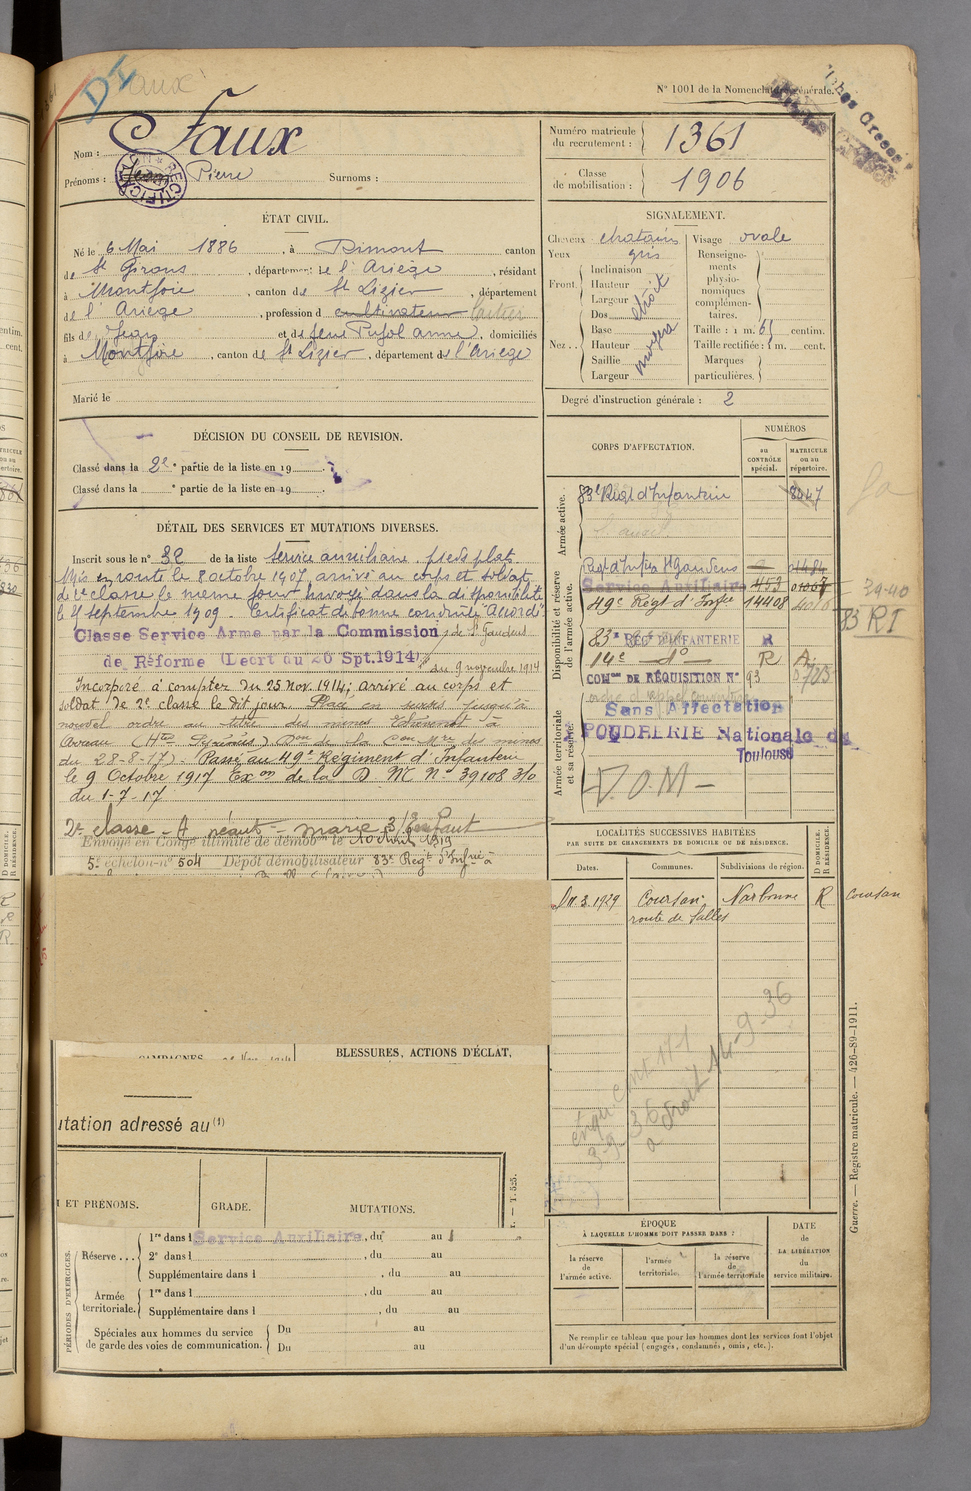 N° 1001 de la Nomenclature générale.
Nom : Faux
Prénoms : Jean Pierre Surnoms :
RECTIFICATION
Numéro matricule du recrutement : 1361
Classe de mobilisation : 1906
ÉTAT CIVIL.
Né le 6 Mai 1886, à Rimont canton
de St Girons, département de l'Ariège, résidant
à Montjoie, canton de St Lizier, département
de l'Ariège, profession d cultivateur
fils de Jean et de feue Pujol Anne, domiciliés
à Montjoie, canton de St Lizier, département de l'Ariège
Marié le
SIGNALEMENT.
Cheveux chatains Visage ovale
Yeux gris
Front. Inclinaison
Hauteur
Largeur
étroit
Nez.. Dos
Base
Hauteur
Saillie
Largeur
moyen
Renseignements physionomiques complémentaires.
Taille : 1 m. 61 centim.
Taille rectifiée : 1 m. cent.
Marques particulières.
Degré d'instruction générale : 2
DÉCISION DU CONSEIL DE REVISION.
Classé dans la 2e partie de la liste en 19
Classé dans la e partie de la liste en 19
DÉTAIL DES SERVICES ET MUTATIONS DIVERSES.
Inscrit sous le n° 32 de la liste Service auxiliaire, pieds plats.
Mis en route le 8 octobre 1907, arrivé au corps et soldat
de 2e classe le même jour. Envoyé dans la disponibilité
le 4 septembre 1909. Certificat de bonne conduite "Accordé"
Classé Service Armé par la Commission de St Gaudens
de Réforme (Décret du 26 Spt. 1914) du 9 novembre 1914
Incorporé à compter du 25 nov. 1914; arrivé au corps et
soldat de 2e classe le dit jour. Placé en sursis jusqu'à
nouvel ordre au titre des mines
Arreau (Htes Pyrénées) Don de la Don Mre des mines
du 28-8-17). Passé au 49e Régiment d'Infanterie
le 9 Octobre 1917 Exon de la D. M. N° 39108 3/0
du 1-7-17
2e classe - A néant - marié 3 Enfant
Envoyé en Congé illimité de démobon le Août 1919
5e échelon n° 504 Dépôt démobilisateur 83e Régt d'Infrie à
CORPS D'AFFECTATION.
NUMÉROS
au CONTRÔLE spécial.
MATRICULE ou au répertoire.
Armée active.
83e Régt d'Infanterie 8047
Disponibilité et réserve de l'armée active.
Régt d'Infrie St Gaudens
Service Auxiliaire 453
49e Régt d'Infie 14408
83e RÉGt D'INFANTERIE R
14e d° R
COMon DE RÉQUISITION N° 93
Armée territoriale et sa réserve.
Sans Affectation
POUDRERIE Nationale de
Toulouse
D.O.M
39-40
83 RI
LOCALITÉS SUCCESSIVES HABITÉES
PAR SUITE DE CHANGEMENTS DE DOMICILE OU DE RÉSIDENCE.
Dates. Communes. Subdivisions de région. D DOMICILE. R RÉSIDENCE.
11.3.1929 Coursan. Narbonne R Coursan
route de Salles
3-9-36
a droit 14-9-36
BLESSURES, ACTIONS D'ÉCLAT,
utation adressé au (1)
ET PRÉNOMS. GRADE. MUTATIONS.
PÉRIODES D'EXERCICES.
Réserve... 1re dans l Service Auxiliaire, du au
2e dans l , du au
Supplémentaire dans l , du au
Armée territoriale. 1re dans l , du au
Supplémentaire dans l , du au
Spéciales aux hommes du service de garde des voies de communication. Du au
Du au
ÉPOQUE
À LAQUELLE L'HOMME DOIT PASSER DANS :
la réserve de l'armée active.
l'armée territoriale.
la réserve de l'armée territoriale
DATE DE LA LIBÉRATION du service militaire.
Ne remplir ce tableau que pour les hommes dont les services font l'objet
d'un décompte spécial (engagés, condamnés, omis, etc.).
Guerre. — Registre matricule. — 426-89-1911.